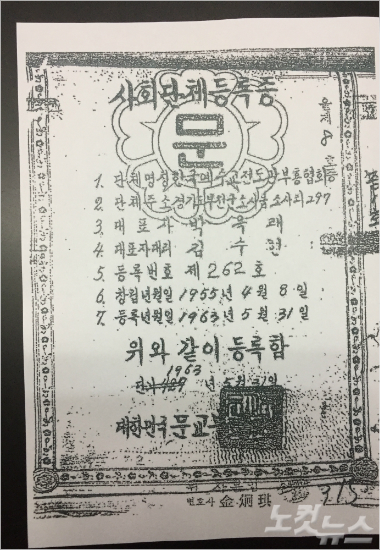 사회단체등록증
문
1. 단체명칭 한국예수교전도관부흥협회
2. 단체주소 경기도부천군소사읍소사리 297
3. 대표자 박
4. 대표자대리 김
5. 등록번호 제 262 호
6. 창립년월일 1955년 4월 8일
7. 등록년월일 1963년 5월 31일
위와 같이 등록함
1963
년 5월 31일
대한민국 문교부
변호사
315
노컷뉴스